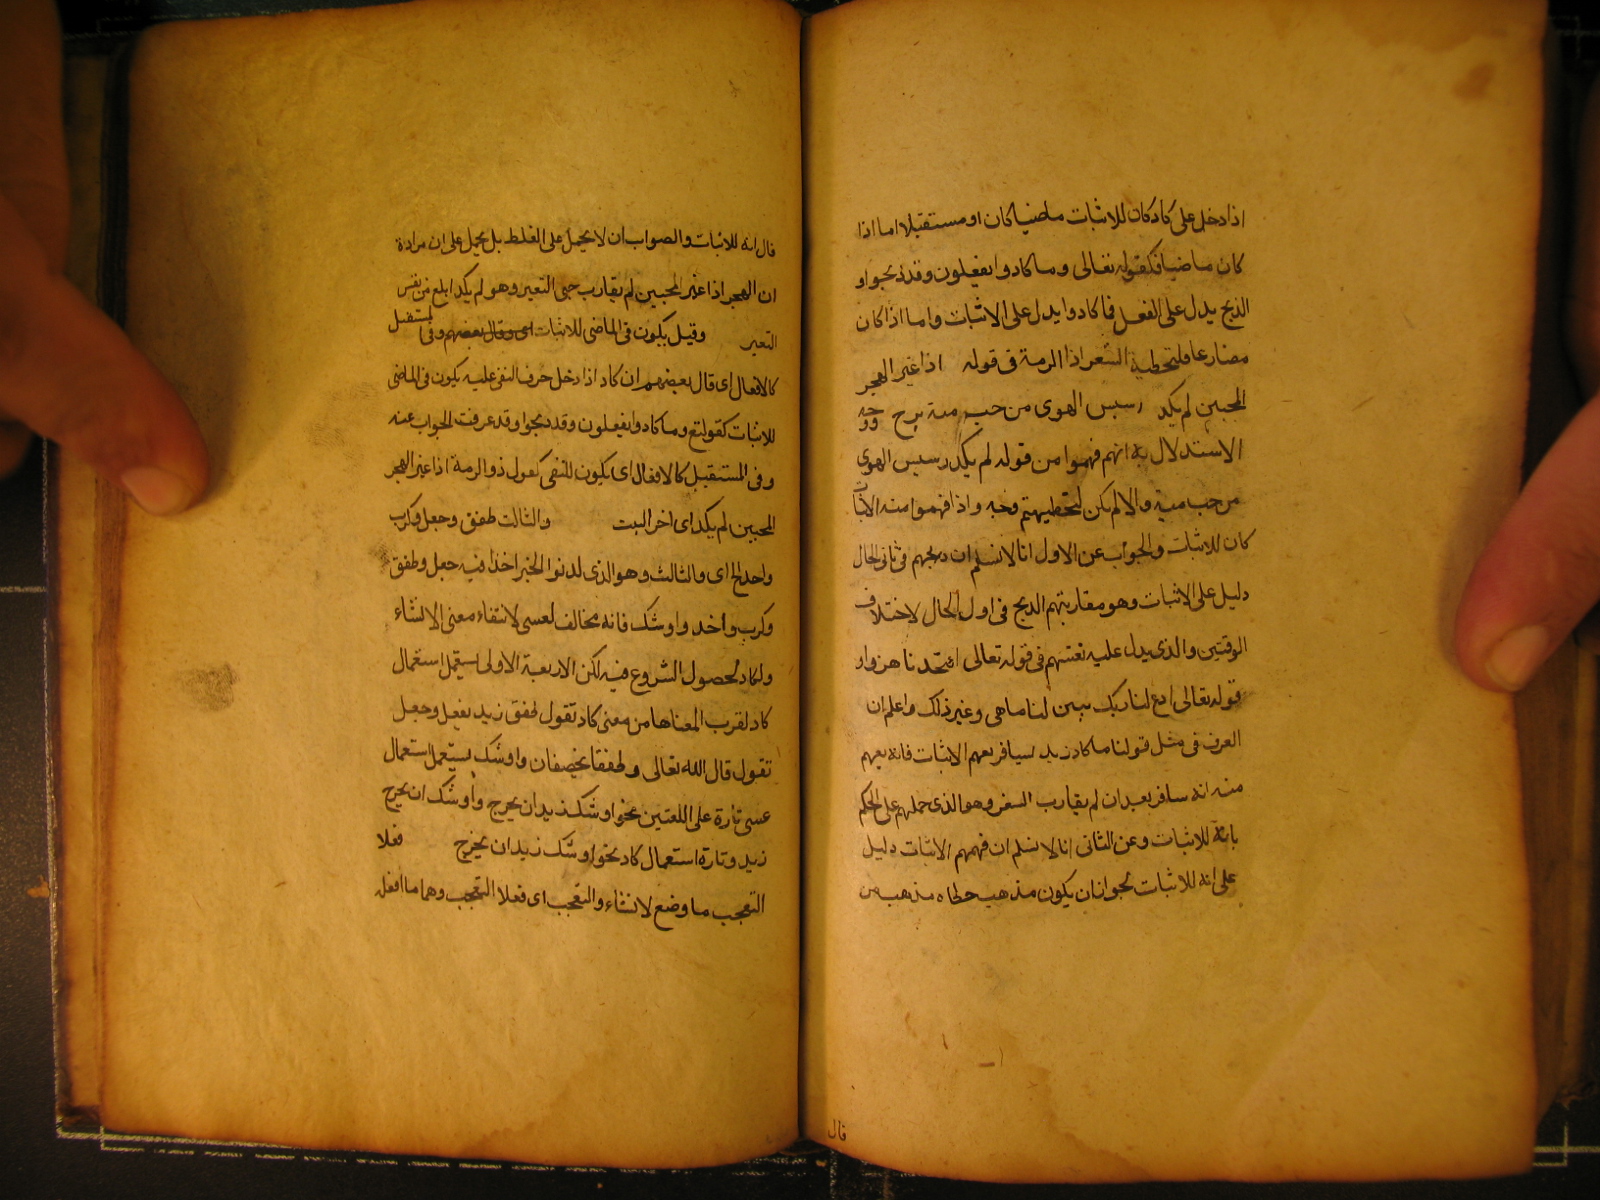 اذا دخل على كاد كان للاثبات ماضيا كان او مستقبلا اما اذا
كان ماضيا فكقوله تعالى وما كادوا يفعلون وقد ذبحوا و
الذبح يدل على الفعل فما كادوا يدل على الاثبات واما اذا كان
مضارعا فلتخطية الشعراء ذا الرمة فى قوله اذا غير الهجر
المحبين لم يكد رسيس الهوى من حب مية يبرح ووجه
الاستدلال به انهم فهموا من قوله لم يكد رسيس الهوى
من حب مية والا لم يكن لتخطيهم وجه واذا فهموا منه الاثبات
كان للاثبات والجواب عن الاول انا لا نسلم ان ذبحهم فى ثانى الحال
دليل على الاثبات وهو مقاربتهم الذبح فى اول الحال لاختلاف
الوقتين والذى يدل عليه تعنتهم فى قوله تعالى اتتخذنا هزوا و
قوله تعالى ادع لنا ربك يبين لنا ما هى وغير ذلك واعلم ان
العرف فى مثل قولنا ما كاد زيد يسافر يعهم الاثبات فانه يعهم
منه انه سافر بعد ان لم يقارب السفر وهو الذى حملهم على الحكم
بانه للاثبات وعن الثانى انا لا نسلم ان فهمهم الاثبات دليل
على انه للاثبات لجواز ان يكون مذهب خطاه مذهب من
قال
قال انه للاثبات والصواب ان لا يحمل على الغلط بل يحمل على ان مراده
ان الهجر اذا غير المحبين لم يقارب حبى التغير وهو لم يكد ابلغ من نفس
التغير وقيل يكون فى الماضى للاثبات وفى المستقبل
كالافعال اى قال بعضهم ان كاد اذا دخل حرف النفى عليه يكون فى الماضى
للاثبات كقوله تع وما كادوا يفعلون وقد ذبحوا وقد عرفت الجواب عنه
وفى المستقبل كالافعال اى يكون للنفى كقول ذو الرمة اذا غير الهجر
المحبين لم يكد اى اخر البيت والثالث طفق وجعل وكرب
واخذ الخ اى والثالث وهو الذى لدنو الخبر اخذا فيه جعل وطفق
وكرب واخذ واوشك فانه مخالف لعسى لانتفاء معنى الانشاء
ولكاد لحصول الشروع فيه لكن الاربعة الاولى استعمل استعمال
كاد لقرب المعناها من معنى كاد تقول طفق زيد يفعل وجعل
تقول قال الله تعالى وطفقا يخصفان واوشك يستعمل استعمال
عسى تارة على اللغتين نحو اوشك زيد ان يخرج واوشك ان يخرج
زيد وتارة استعمال كاد نحو اوشك زيد ان يخرج فعلا
التعجب ما وضع لانشاء والتعجب اى فعلا التعجب وهما ما افعله